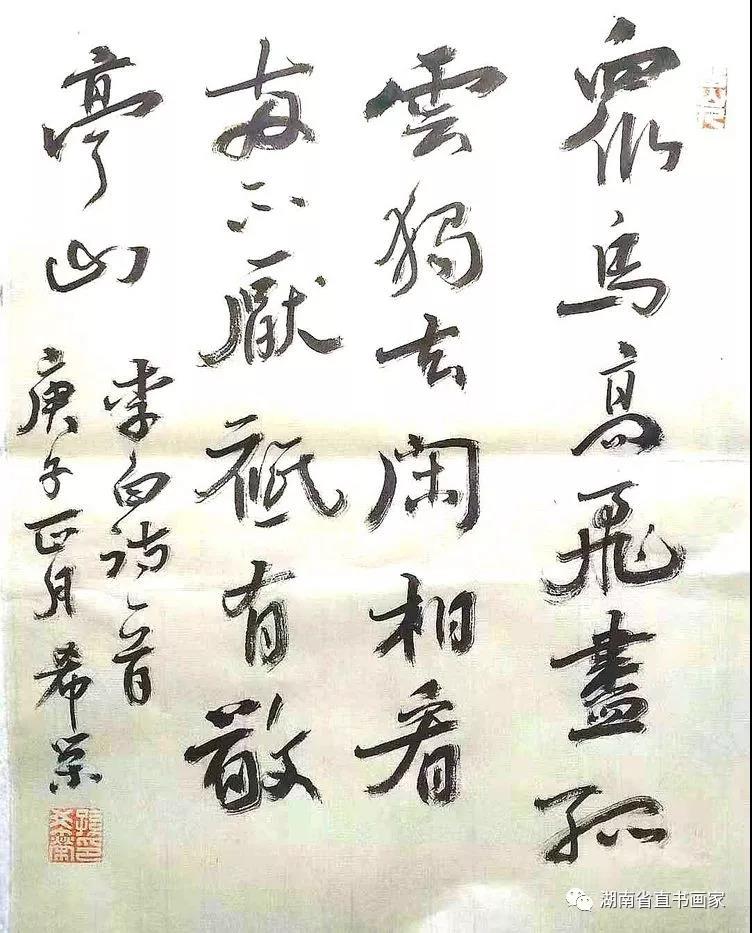 眾鳥高飛盡孤
雲獨去閑相看
兩不厭祗有敬
亭山
李白詩一首
庚子正月希榮
湖南省直书画家